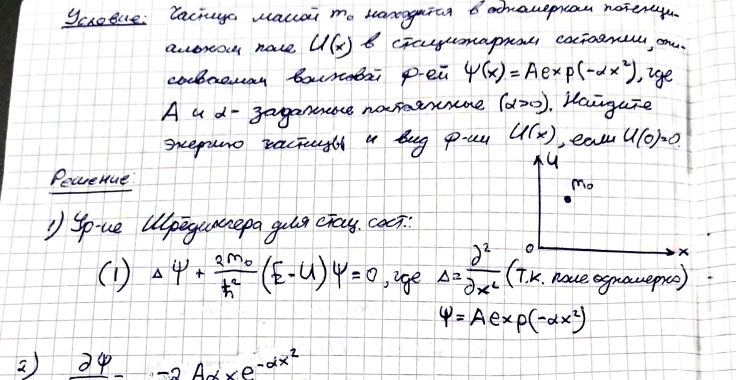 Условие: Частица массой m₀ находится в одномерном потенци-
альном поле U(x) в стационарном состоянии, опи-
сываемом волновой ф-ей Ψ(x) = A exp(-αx²), где
A и α - заданные постоянные (α>0). Найдите
энергию частицы и вид ф-ии U(x), если U(0)=0.
Решение:
U
m₀
0
x
1) Ур-ие Шрёдингера для стац. сост.:
(1) ΔΨ + 2m₀/ħ² (E - U)Ψ = 0, где Δ = ∂²/∂x² (т.к. поле одномерно)
Ψ = A exp(-αx²)
2) ∂Ψ = -2Aαxe^(-αx²)